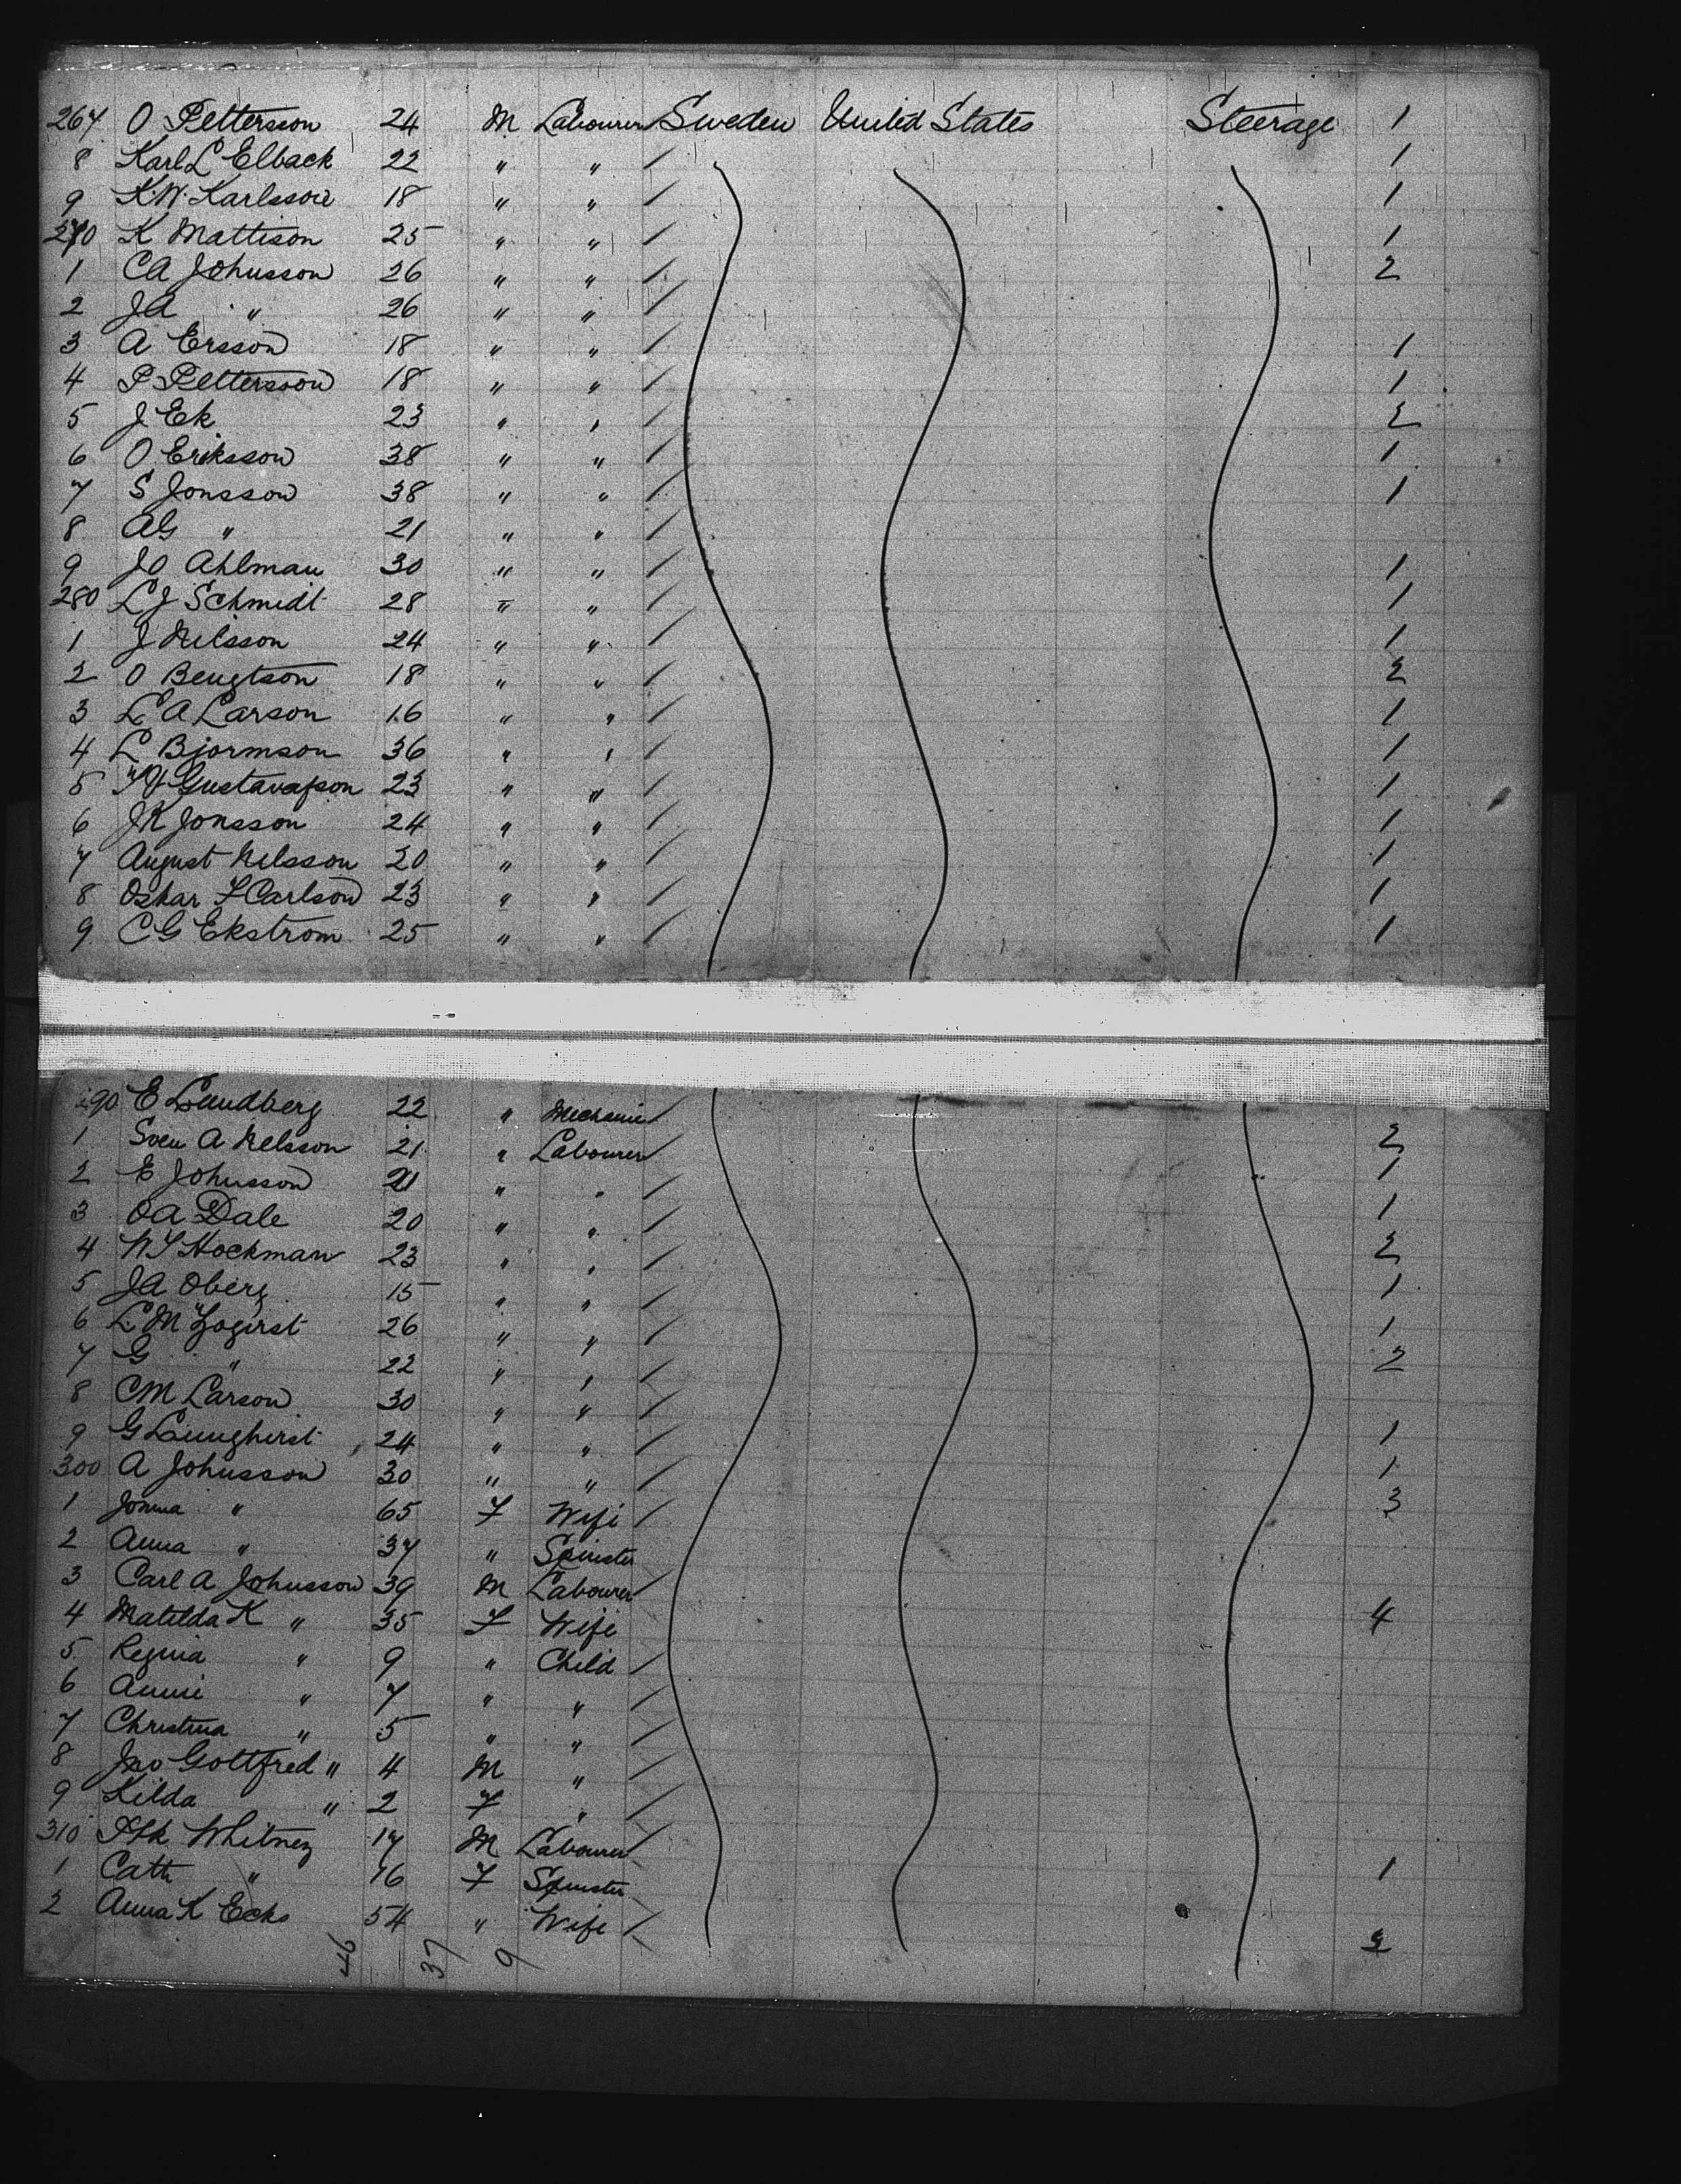 267 O Pettersson 24 M Labourer Sweden United States Steerage 1
8 Karl L Elback 22 " " / 1
9 K.W. Karlsson 18 " " / 1
270 K Mattison 25 " " / 1
1 CA Johnsson 26 " " / 2
2 JA " 26 " " /
3 A Ersson 18 " " / 1
4 P Pettersson 18 " " / 1
5 J Ek 23 " " / 2
6 O Eriksson 38 " " / 1
7 S Jonsson 38 " " / 1
8 AG " 21 " " /
9 JO Ahlman 30 " " / 1
280 LJ Schmidt 28 " " / 1
1 J Nilsson 24 " " / 1
2 O Bengtson 18 " " / 2
3 L A Larson 16 " " / 1
4 L Bjormson 36 " " / 1
5 Gustavafson 23 " " / 1
6 JK Jonsson 24 " " / 1
7 August Nelsson 20 " " / 1
8 Oskar F Carlson 23 " " / 1
9 CG Ekstrom 25 " " / 1
290 E Lundberg 22 " Mechanic /
1 Sven A Nelsson 21 " Labourer 2
2 E Johnsson 21 " " / 1
3 OA Dale 20 " " / 1
4 Hockman 23 " " / 2
5 JA Oberg 15 " " / 1
6 L M 26 " " / 1
7 G " 22 " " / 2
8 CM Larson 30 " " /
9 G Lunghirst 24 " " / 1
300 A Johnsson 30 " " / 1
1 " 65 F Wife / 3
2 Anna " 37 " Spinster
3 Carl A Johnsson 39 M Labourer
4 Matilda K " 35 F Wife 4
5 Regina " 9 " Child /
6 Annie " 7 " " /
7 Christina " 5 " " /
8 Jno Gottfred " 4 M " /
9 Kilda " 2 F " /
310 Whitney 17 M Labourer
1 Cath " 16 F Spinster 1
2 Anna K Ecks 54 " Wife /
46 37 9